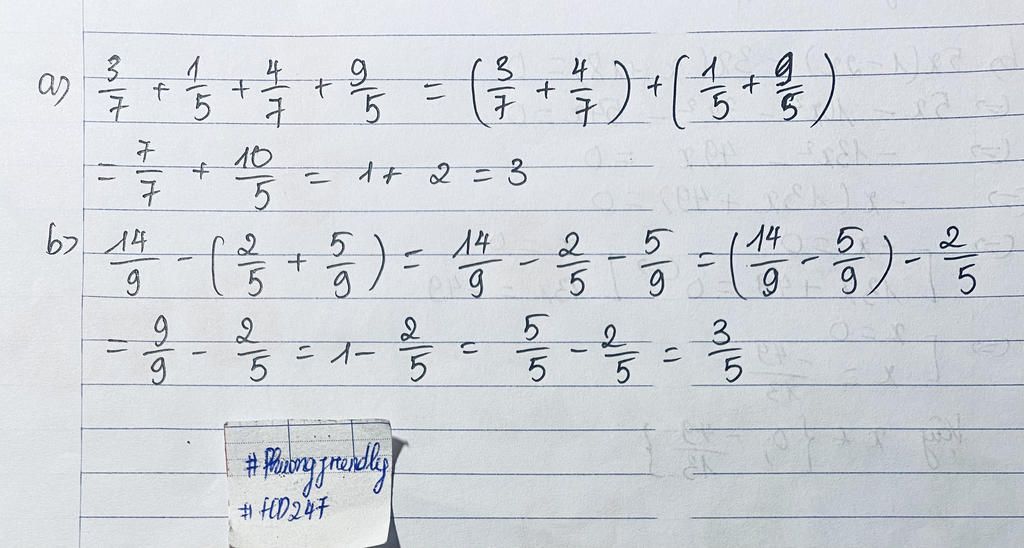 a) 3/7 + 1/5 + 4/7 + 9/5 = (3/7 + 4/7) + (1/5 + 9/5)
= 7/7 + 10/5 = 1 + 2 = 3
b) 14/9 - (2/5 + 5/9) = 14/9 - 2/5 - 5/9 = (14/9 - 5/9) - 2/5
= 9/9 - 2/5 = 1 - 2/5 = 5/5 - 2/5 = 3/5
#Phuongfriendly
#HD247